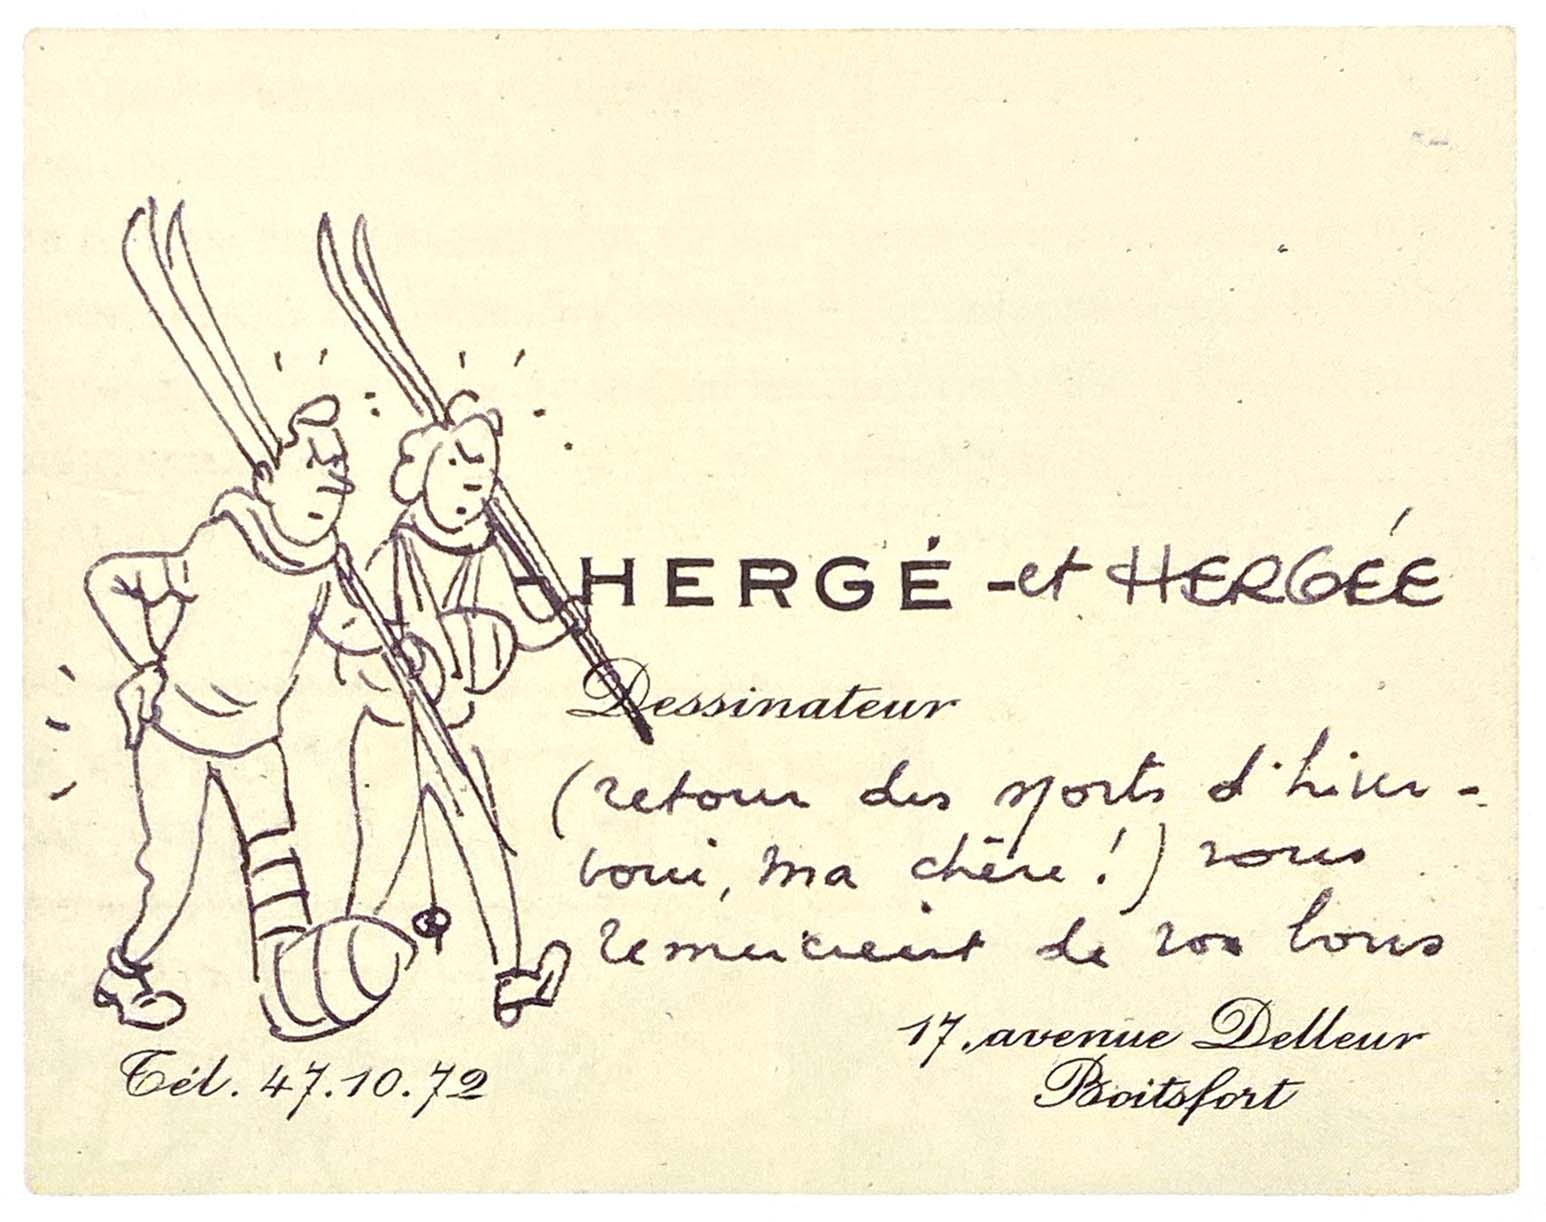 - HERGÉ - et HERGÉE
Dessinateur
(retour des sports d'hiver -
voui, ma chère!) vous
remercient de vos bons
17, avenue Delleur
Boitsfort
Tél. 47.10.72